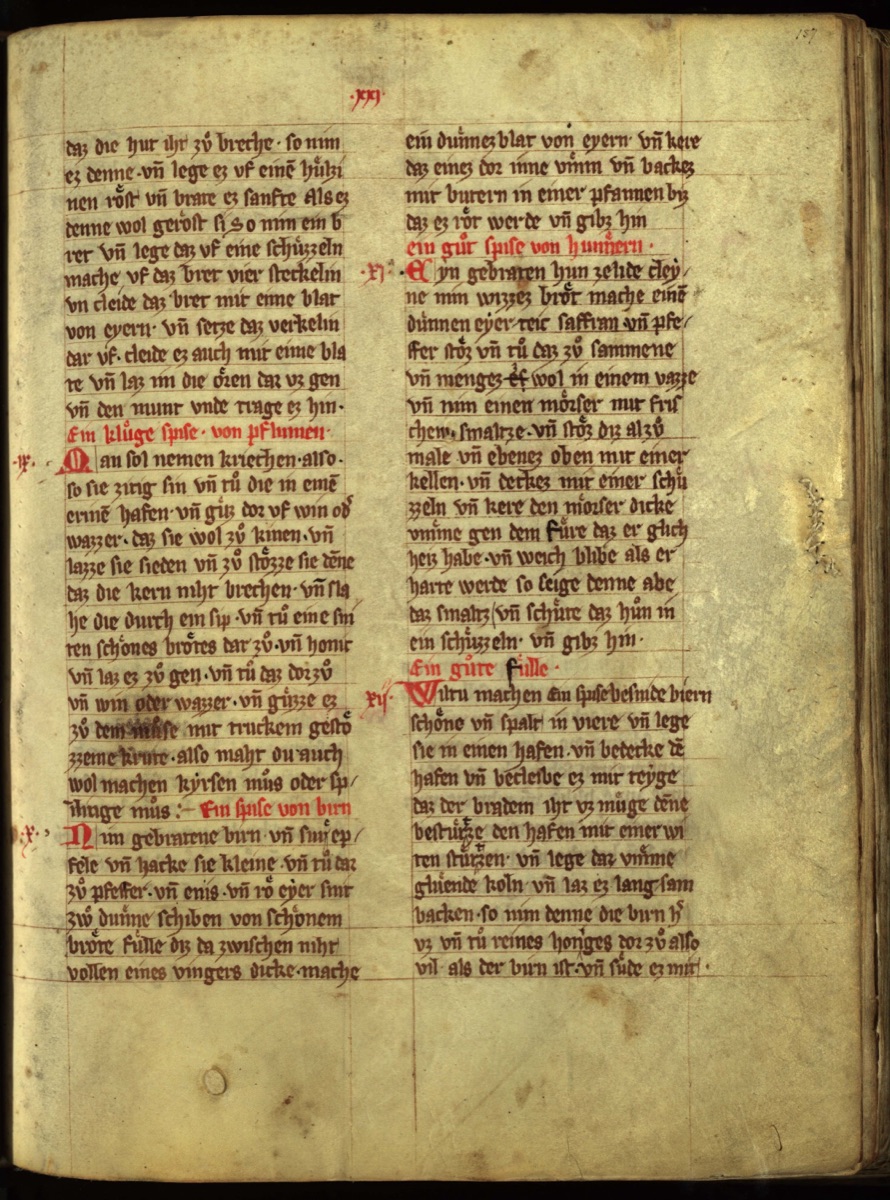 157
·xxi·
daz die hut iht zuͦ breche · so nim
ez denne · vn̄ lege ez vf einē huͤlzi
nen roͤst vn̄ brate ez sanfte Als ez
denne wol geroͤst si So nim ein b
ret vn̄ lege daz vf eine schuͤzzeln
mache vf daz bret vier steckelin
vn cleide daz bret mit eime blat
von eyern · vn̄ setze daz verkelin
dar vf · cleide ez auch mit eime bla
te vn̄ laz im die oͤren dar vz gen
vn̄ den munt vnde trage ez hin ·
Ein kluͦge spise · von pflumen ·
·ix· Man sol nemen kriechen · also ·
so sie zitig sin vn̄ tuͦ die in einē
erinē hafen · vn̄ guͤz dor vf win od᷒
wazzer · daz sie wol zuͦ kinen · vn̄
lazze sie sieden vn̄ zuͦ stoͤzze sie dēne
daz die kern niht brechen · vn̄ sla
he die durch ein sip · vn̄ tuͦ eine sni
ten schoͤnes broͤtes dar zuͦ · vn̄ honit
vn̄ laz ez zuͦ gen · vn̄ tuͦ daz dor zuͦ
vn̄ win oder wazzer · vn̄ guͤzze ez
zuͦ dem muͦse mit truckem gestoͤ
zzeme krute · also maht du auch
wol machen kyrsen muͦs oder sp/
ihtige muͦs :– Ein spise von birn
·x· Nim gebratene birn · vn̄ sur ep/
fele vn̄ hacke sie kleine · vn̄ tuͦ dar
zuͦ pfeffer · vn̄ enis · vn̄ ro eyer snit
zwͦ dunne schiben von schoͤnem
broͤte fuͤlle diz da zwischen niht
vollen eines vingers dicke · mache
ein dunnez blat von eyern · vn̄ kere
daz einez dor inne vmm vn̄ backez
mit butern in einer pfannen biz
daz ez roͤt werde vn̄ gibz hin
ein guͦt spise von huͤnern ·
·xi· Eyn gebraten hun zelide cley/
ne nim wizzez broͤt mache einē
dunnen eyer teic saffran vn̄ pfe/
ffer stoͤz vn̄ tuͦ daz zuͦ sammene
vn̄ mengez wol in einem vazze
vn̄ nim einen moͤrser mit fris
chem smaltze · vn̄ stoͤz diz alzuͦ
male vn̄ ebenez oben mit einer
kellen · vn̄ deckez mit einer schuͤ
zzeln vn̄ kere den moͤrser dicke
vmme gen dem fuͤre daz er glich
heiz habe · vn̄ weich blibe als er
harte werde so seige denne abe
daz smaltz vn̄ schuͤte daz huͦn in
ein schuͤzzeln · vn̄ gibz hin ·
Ein guͦte fuͤlle ·
xij· Wiltu machen Ein spise besnide biern
schoͤne vn̄ spalt in viere vn̄ lege
sie in einen hafen · vn̄ bedecke dē
hafen vn̄ becleibe ez mit teyge
daz der bradem iht vz muͤge dēne
bestuͤrtze den hafen mit einer wi
ten stuͤrtzen · vn̄ lege dar vmme
gluͤende koln vn̄ laz ez langsam
backen · so nim denne die birn h᷒
vz vn̄ tuͦ reines honiges dor zuͦ also
vil als der birn ist · vn̄ suͤde ez mit ·